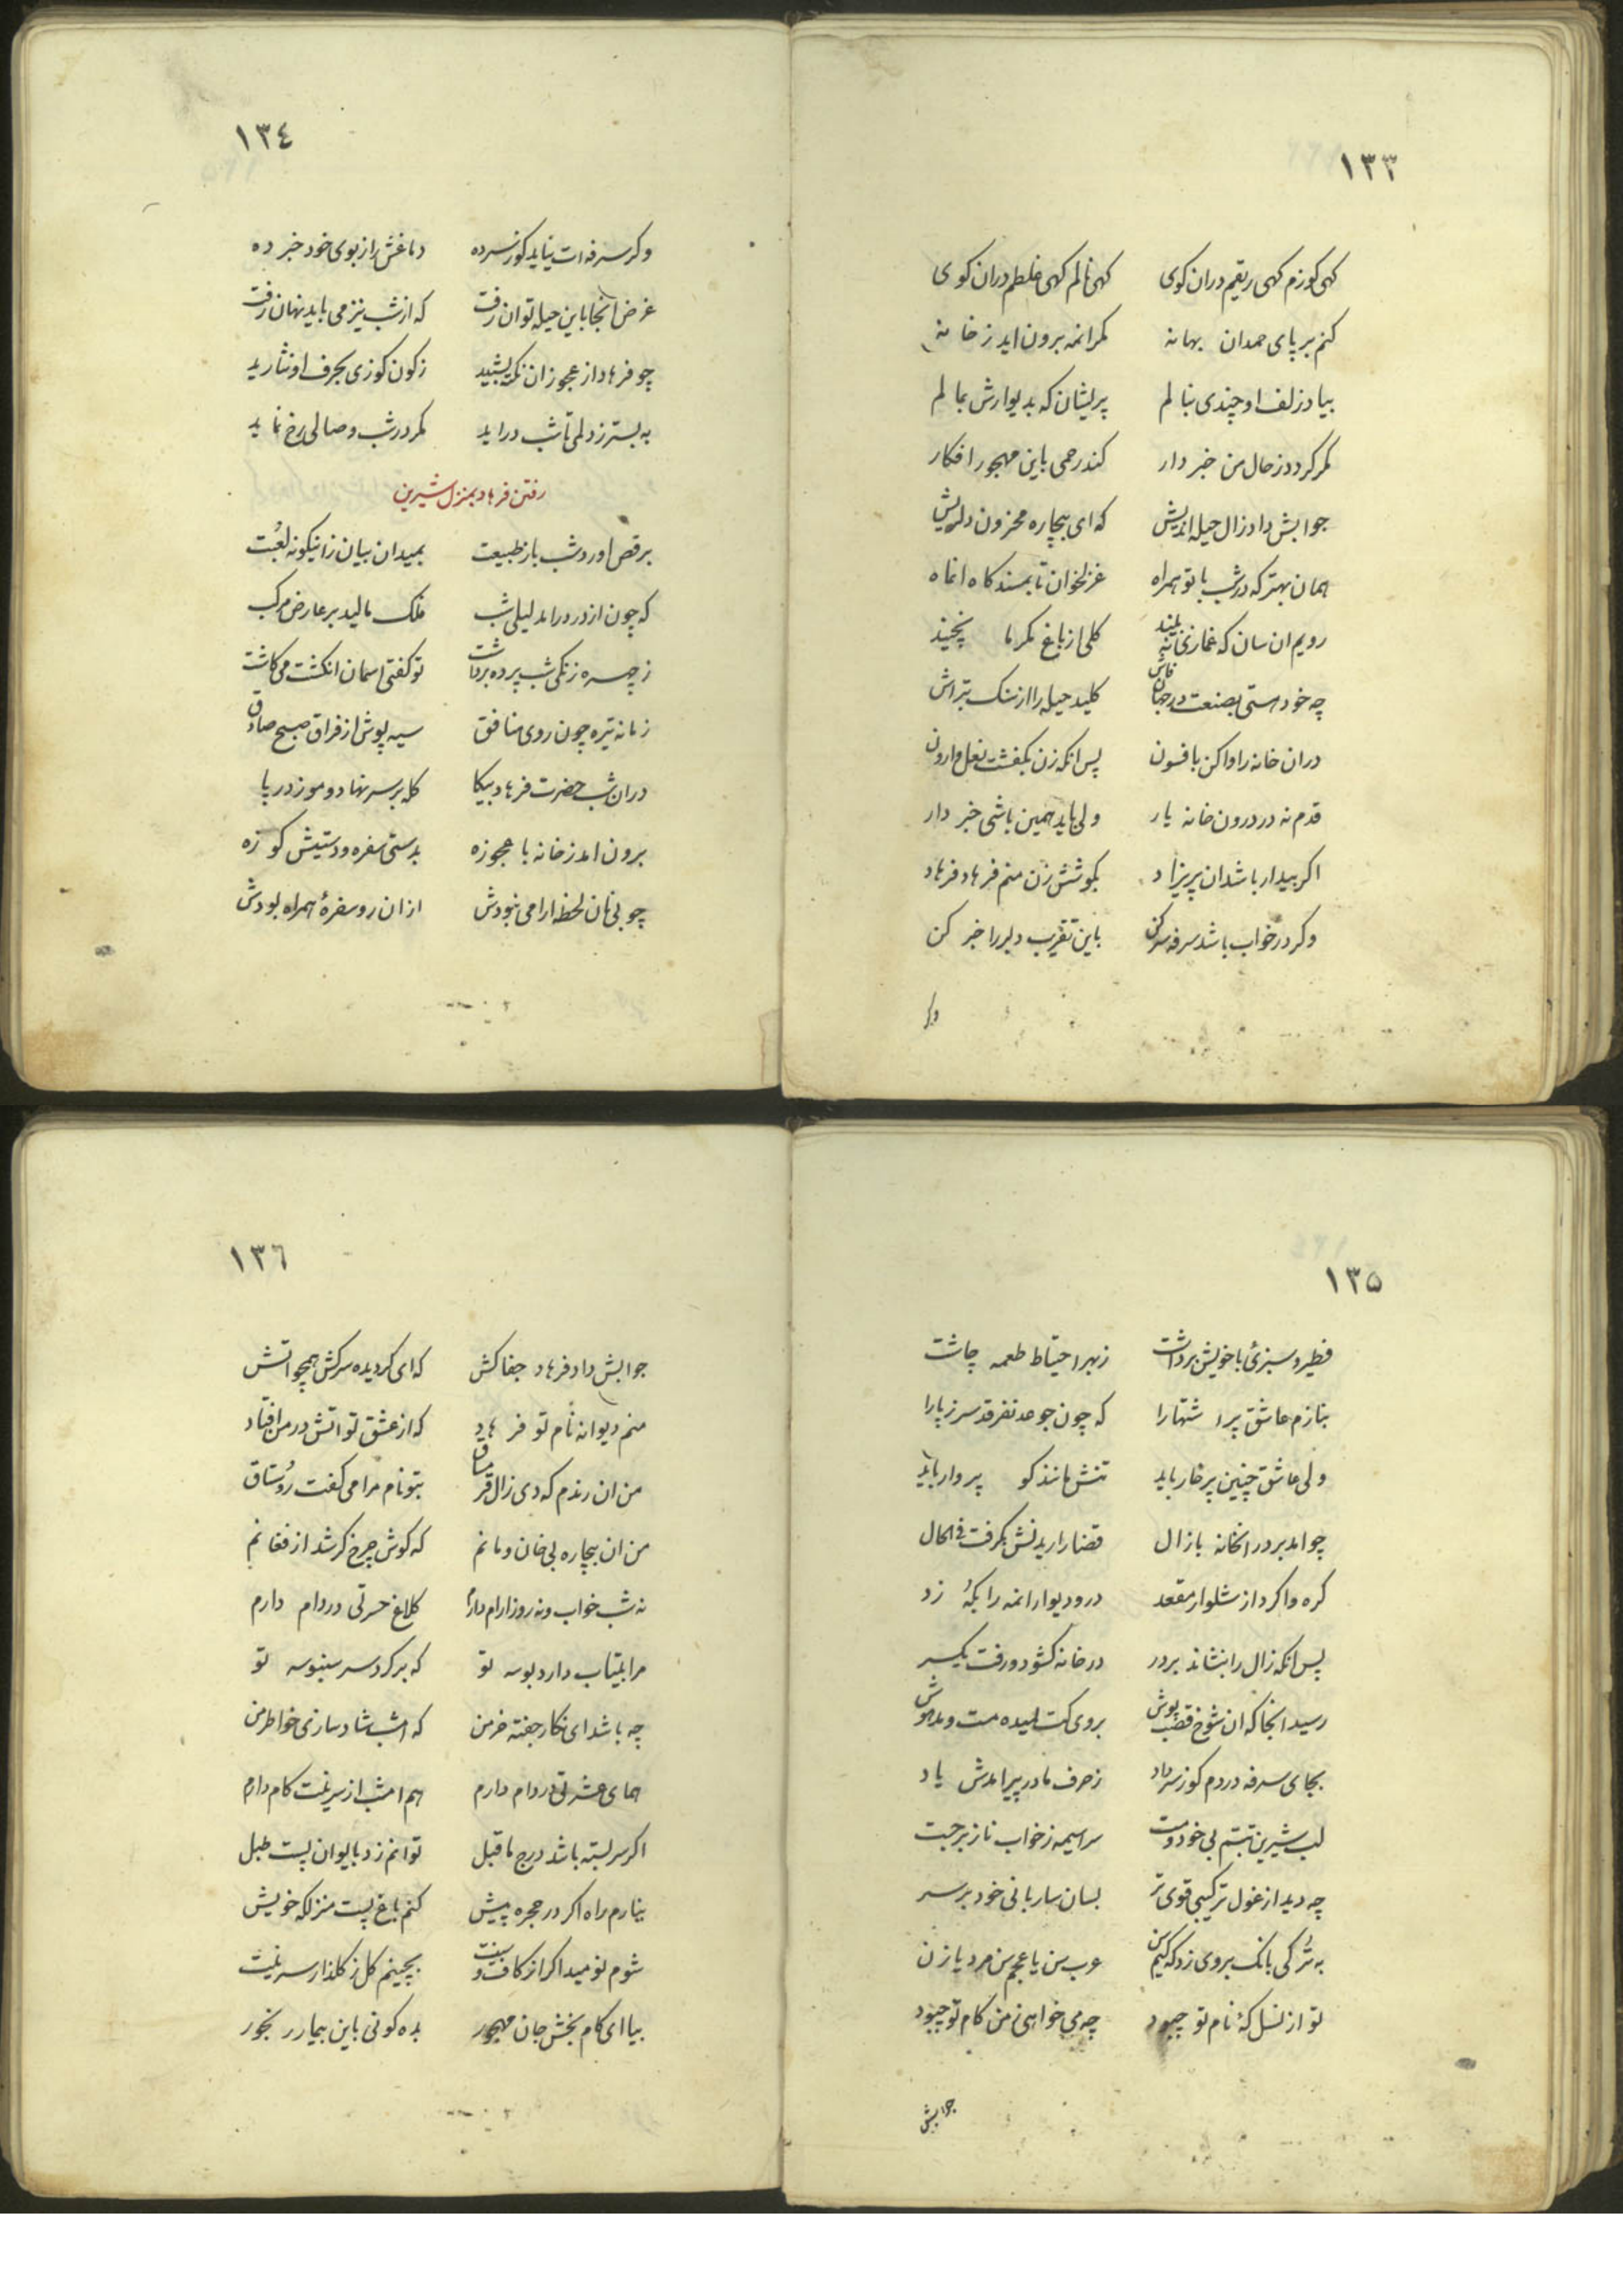 ۱۳۳
کهی کوزم کهی ریقیم دران کوی کهی نالم کهی غلطم دران کوی
کنم بر پای حمدان بهانه مکر انمه برون اید ز خانه
بیاد زلف او چندی بنالم پریشان که بدیوارش بمالم
مکر کردد ز حال من خبردار کند رحمی باین مهجور افکار
جوابش داد زال حیله اندیش که ای بیچاره محزون دلریش
همان بهتر که در شب با تو همراه غزلخوان تا بمسندکاه انماه
رویم ان سان که غمازی نه بیند کلی از باغ مکر ما نچیند
چه خود هستی بصنعت در جهان فاش کلید حیله را از سنک بتراش
دران خانه را واکن بافسون پس انکه زن بکفشت نعل وارون
قدم نه در درون خانه یار ولی باید همین باشی خبردار
اکر بیدار باشد ان پریزاد بکوشش زن منم فرهاد فرهاد
وکر در خواب باشد سرفه سر کن باین تقریب دلبر را خبر کن
وکر
۱۳٤
وکر سرفه ات نیاید کوز سر ده دماغش را ز بوی خود خبر ده
غرض انجا باین حیله توان رفت که از شب نیز می باید نهان رفت
چو فرهاد از عجوز ان نکته بشنید ز کون کوزی بحرف او نثارید
به بستر زد لمی تا شب در اید مکر در شب وصالی رخ نماید
رفتن فرهاد بمنزل شیرین
برقص اورد شب باز طبیعت بمیدان بیان زانیکونه لعبت
که چون از در درامد لیلی شب فلک مالید بر عارض مرکب
ز چهره زنکی شب پرده برداشت تو کفتی اسمان انکشت می کاشت
زمانه تیره چون روی منافق سیه پوش از فراق صبح صادق
دران شب حضرت فرهاد بیکا کله بر سر نهاد و موزه در پا
برون امد ز خانه با عجوزه بدستی سفره و دستیش کوزه
چو بی نان لحظه ارامی نبودش ازان رو سفرهٔ همراه بودش
۱۳۵
فطیر و سبزیٔ با خویش برداشت ز بهر احتیاط طعمه چاشت
بنازم عاشق پر اشتها را که چون جوعد نفرقد سر ز پا را
ولی عاشق چنین پرخار باید تنش مانند کو پروار باید
چو امد بر در انخانه با زال قضا را ریدنش بکرفت فی الحال
کره واکرد از شلوار مقعد در و دیوار انمه را بکه زد
پس انکه زال را بنشاند بر در در خانه کشود و رفت یکسر
رسید انجا که ان شوخ قصب پوش بروی کت لمیده مست و مدهوش
بجای سرفه در دم کوز سر داد ز حرف مادر پیر امدش یاد
لب شیرین تبسم بی خود و مست سراسیمه ز خواب ناز برجست
چه دید از غول ترکیبی قوی تر بسان ساربانی خود بر سر
به ترکی بانک بروی زد که کیم سن عرب سن یا عجم سن مرد یا زن
تو از نسل کهٔ نام تو چبود چه می خواهی ز من کام تو چبود
جوابش
۱۳٦
جوابش داد فرهاد جفاکش که ای کردیده سرکش همچو اتش
منم دیوانه نام تو فرهاد که از عشق تو اتش در من افتاد
من ان رندم که دی زال قرمساق بتو نام مرا می کفت رُستاق
من ان بیچاره بی خان و مانم که کوش چرخ کر شد از فغانم
نه شب خواب و نه روز ارام دارم کلاغ حسرتی در دام دارم
مرا بیتاب دارد بوسه تو که برکرد سر سنبوسه تو
چه باشد ای نکار جفته خرمن که امشب شاد سازی خاطر من
همای عشرتی در دام دارم هم امشب از سرینت کام دارم
اکر سر بسته باشد درج ما قبل توانم زد بایوان پست طبل
نیارم راه اکر در حجره پیش کنم باغ پست منزلکه خویش
شوم نومید اکر از کاف و سینت بچینم کل ز کلذار سرینت
بیا ای کام بخش جان مهجور بده کونی باین بیمار رنجور